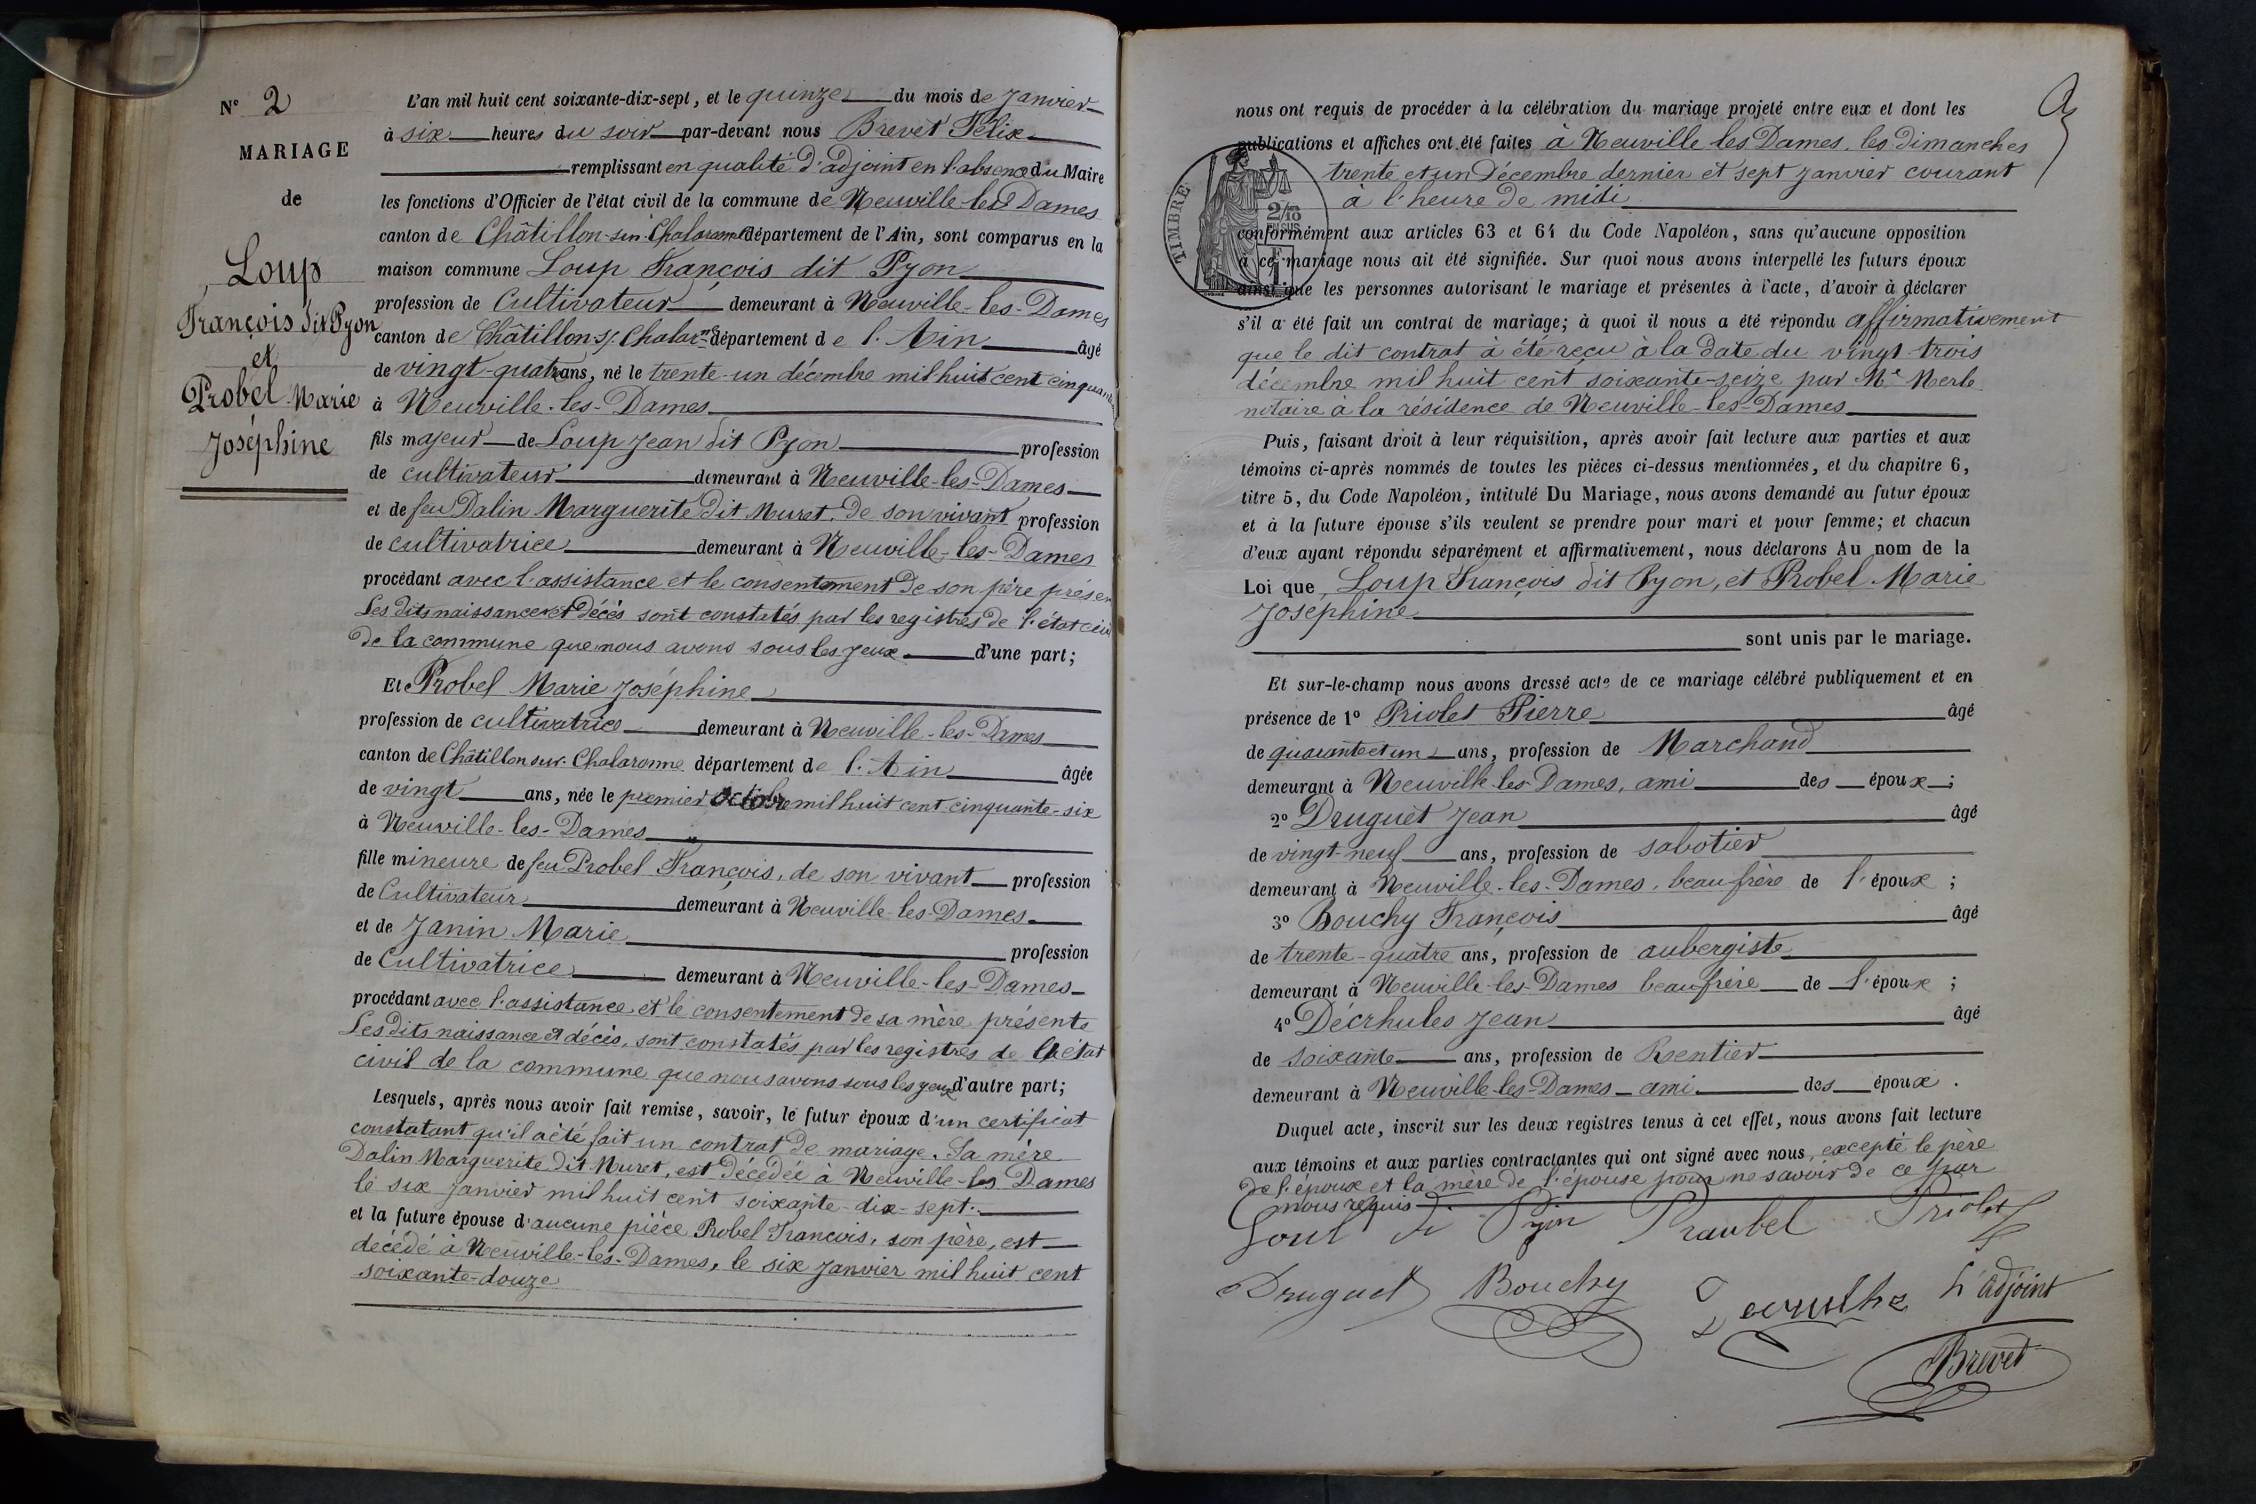 N° 2
MARIAGE
de
Loup
François dit Pyon
et
Probel Marie
Joséphine
L'an mil huit cent soixante-dix-sept, et le quinze du mois de Janvier
à six heures du soir par-devant nous Brevet Félix
remplissant en qualité d'adjoint en l'absence du Maire
les fonctions d'Officier de l'état civil de la commune de Neuville-les-Dames
canton de Châtillon-sur-Chalaronne département de l'Ain, sont comparus en la
maison commune Loup François dit Pyon
profession de Cultivateur demeurant à Neuville-les-Dames
canton de Châtillon-s/-Chalarne département de l'Ain âgé
de vingt-quatre ans, né le trente-un décembre mil huit cent cinquante
à Neuville-les-Dames
fils majeur de Loup Jean dit Pyon profession
de cultivateur demeurant à Neuville-les-Dames
et de feu Dalin Marguerite dit Muret, de son vivant profession
de cultivatrice demeurant à Neuville-les-Dames
procédant avec l'assistance et le consentement de son père présen
Les dits naissance et décès sont constatés par les registres de l'état civil
de la commune que nous avons sous les yeux d'une part;
Et Probel Marie Joséphine
profession de cultivatrice demeurant à Neuville-les-Dames
canton de Châtillon sur-Chalaronne département de l'Ain âgée
de vingt ans, née le premier octobre mil huit cent cinquante-six
à Neuville-les-Dames
fille mineure de feu Probel François, de son vivant profession
de Cultivateur demeurant à Neuville-les-Dames
et de Janin Marie profession
de Cultivatrice demeurant à Neuville-les-Dames
procédant avec l'assistance et le consentement de sa mère présente
Les dits naissance et décès, sont constatés par les registres de l'état
civil de la commune que nous avons sous les yeux d'autre part;
Lesquels, après nous avoir fait remise, savoir, le futur époux d'un certificat
constatant qu'il a été fait un contrat de mariage. Sa mère
Dalin Marguerite dit Muret, est décédée à Neuville-les Dames
le six janvier mil huit cent soixante-dix-sept.
et la future épouse d'aucune pièce Probel François, son père, est
décédé à Neuville-les-Dames, le six janvier mil huit cent
soixante-douze
nous ont requis de procéder à la célébration du mariage projeté entre eux et dont les
publications et affiches ont été faites à Neuville-les Dames, les dimanches
trente et un Décembre dernier et sept Janvier courant
à l'heure de midi
TIMBRE
2/10
EN SUS
conformément aux articles 63 et 64 du Code Napoléon, sans qu'aucune opposition
à ce mariage nous ait été signifiée. Sur quoi nous avons interpellé les futurs époux
ainsi que les personnes autorisant le mariage et présentes à l'acte, d'avoir à déclarer
s'il a été fait un contrat de mariage; à quoi il nous a été répondu affirmativement
que le dit contrat à été reçu à la date du vingt-trois
décembre mil huit cent soixante-seize par Me Merle
notaire à la résidence de Neuville-les-Dames
Puis, faisant droit à leur réquisition, après avoir fait lecture aux parties et aux
témoins ci-après nommés de toutes les pièces ci-dessus mentionnées, et du chapitre 6,
titre 5, du Code Napoléon, intitulé Du Mariage, nous avons demandé au futur époux
et à la future épouse s'ils veulent se prendre pour mari et pour femme; et chacun
d'eux ayant répondu séparément et affirmativement, nous déclarons Au nom de la
Loi que Loup François dit Pyon, et Probel Marie
Josephine
sont unis par le mariage.
Et sur-le-champ nous avons dressé acte de ce mariage célébré publiquement et en
présence de 1° Priolet Pierre âgé
de quarante et un ans, profession de Marchand
demeurant à Neuville-les-Dames, ami des époux;
2° Druguet Jean âgé
de vingt-neuf ans, profession de sabotier
demeurant à Neuville-les-Dames, beau frère de l'époux;
3° Bouchy François âgé
de trente-quatre ans, profession de aubergiste
demeurant à Neuville-les-Dames beau frère de l'époux;
4° Décrhules Jean âgé
de soixante ans, profession de Rentier
demeurant à Neuville-les-Dames ami des époux.
Duquel acte, inscrit sur les deux registres tenus à cet effet, nous avons fait lecture
aux témoins et aux parties contractantes qui ont signé avec nous, excepté le père
de l'époux et la mère de l'épouse pour ne savoir de ce par
nous requis
Loup di Pyon Praubel Priolet
Druguet Bouchy L'adjoint
Brevet